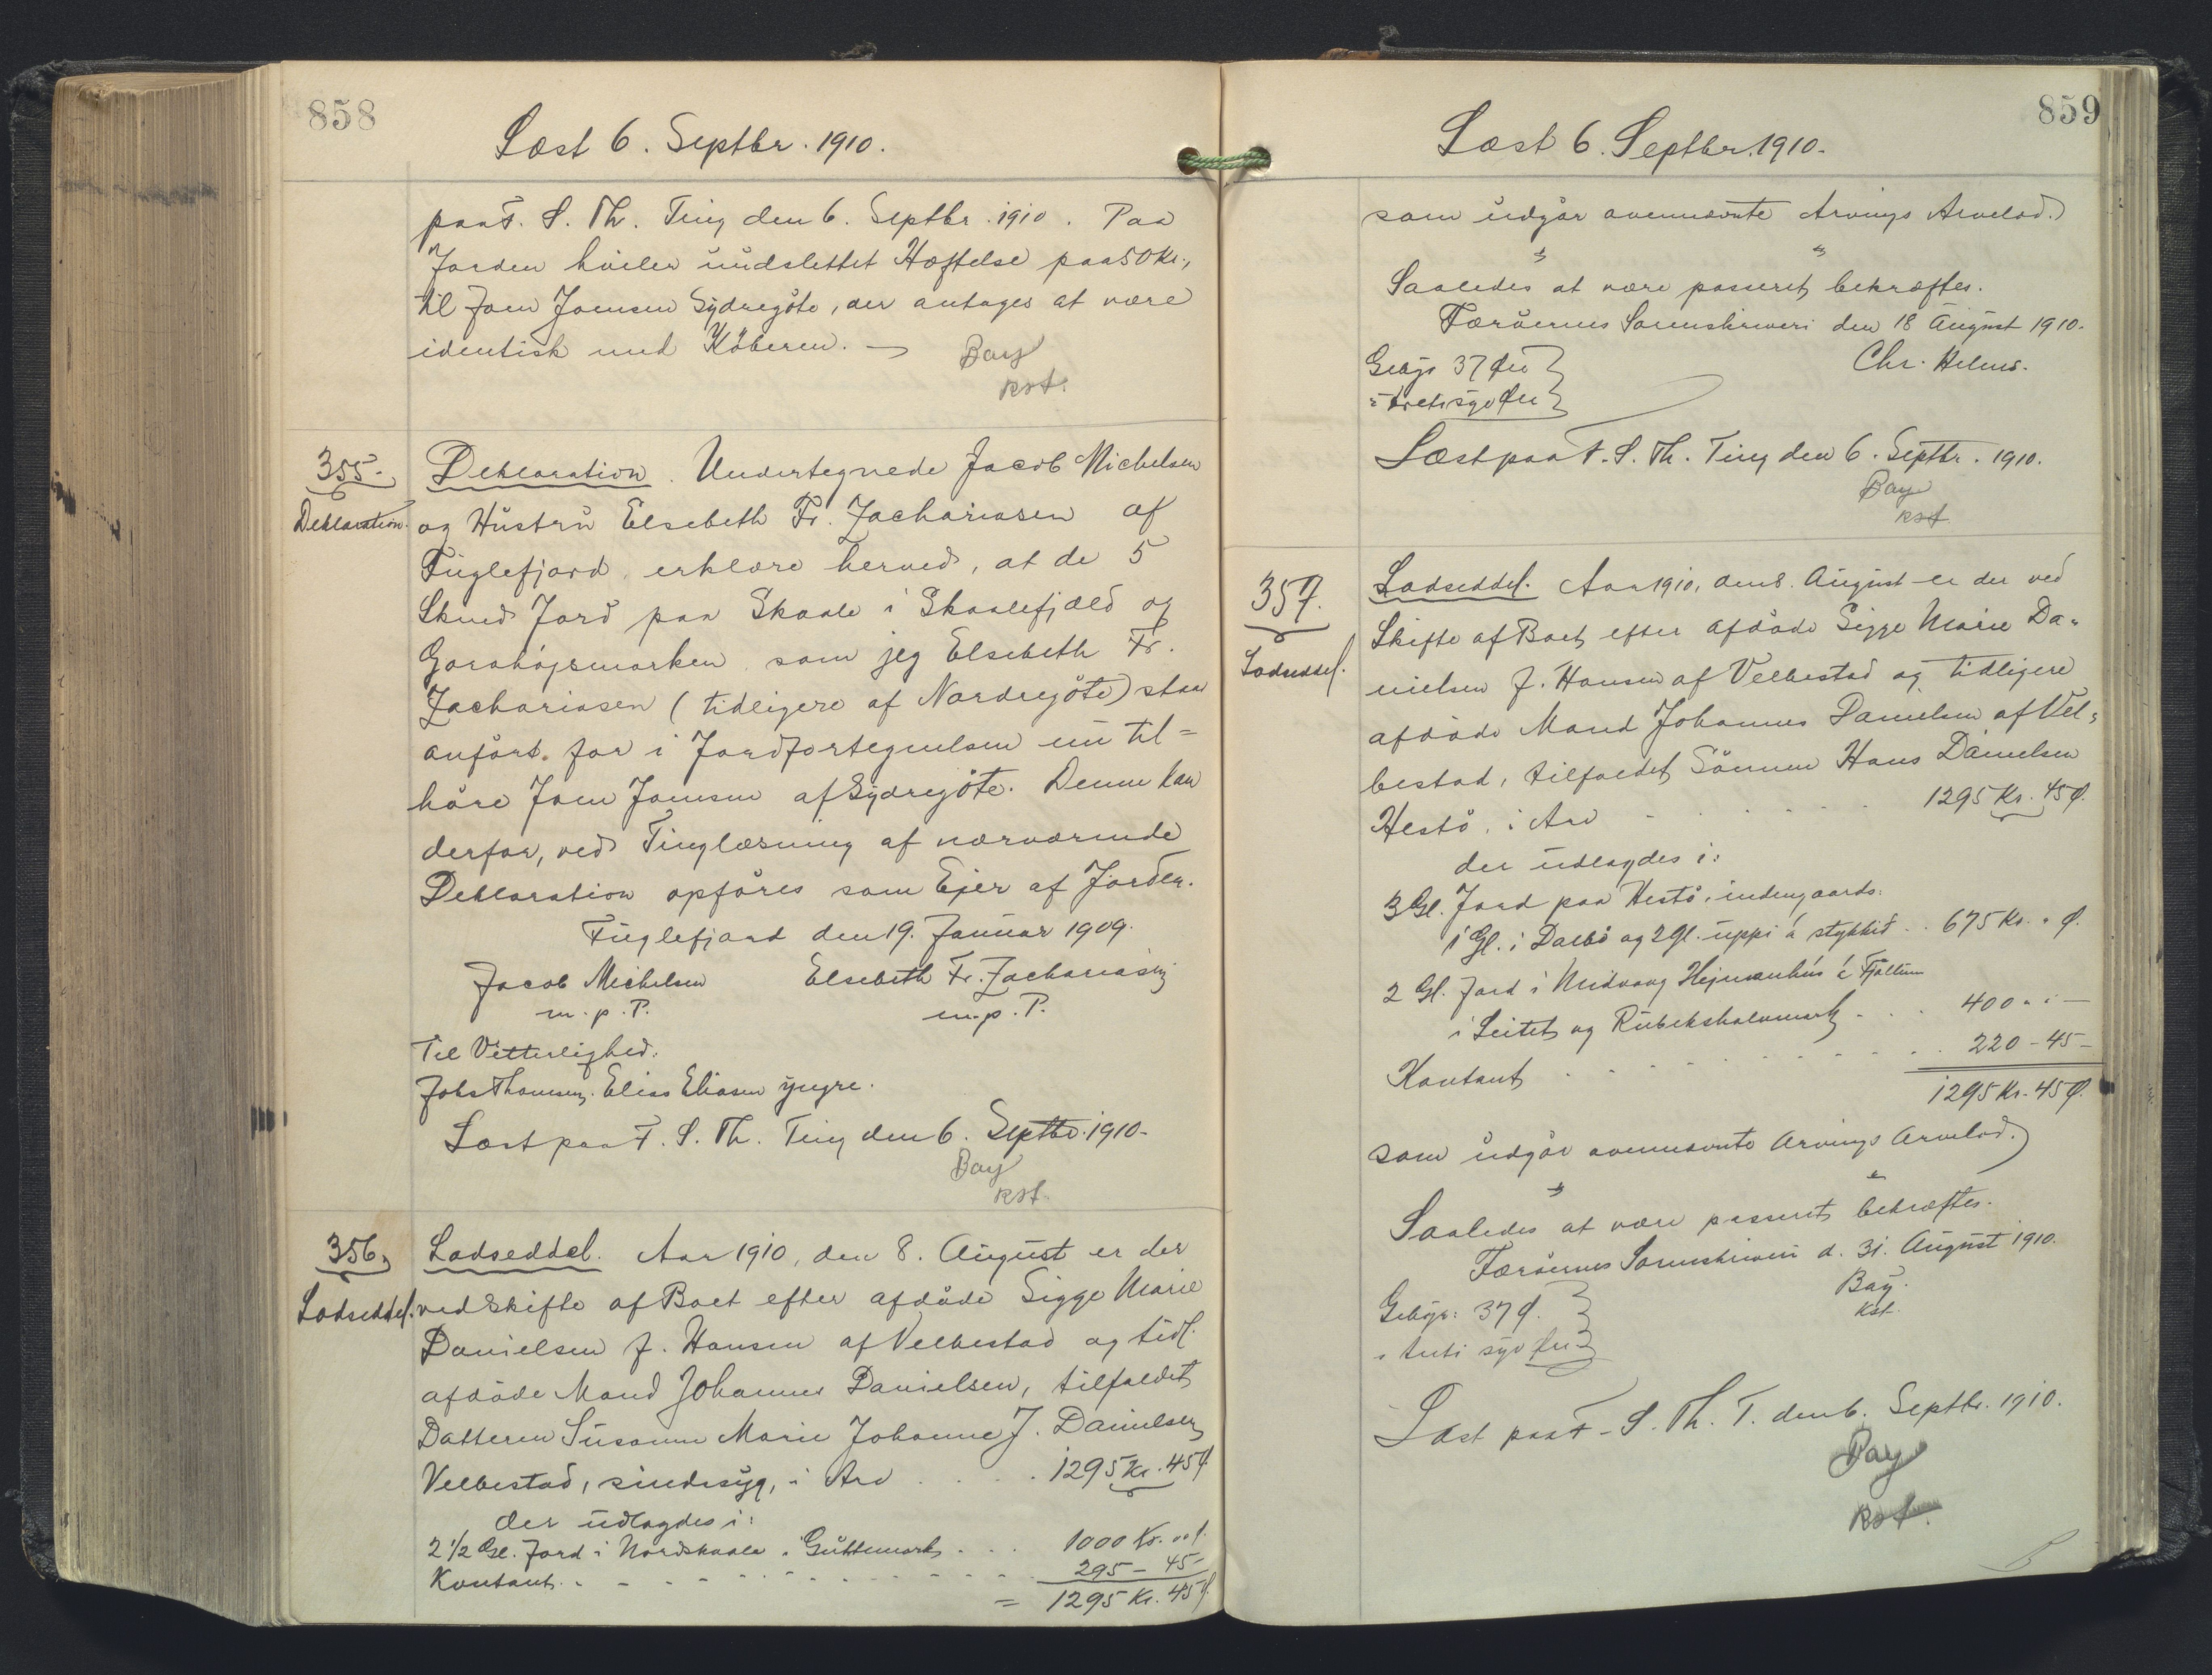 858
Læst 6. Septbr. 1910.
paa F. S. Th. Ting den 6. Septbr. 1910. Paa
Jorden hviler uudslettet Hæftelse paa 50 Kr.,
til Joen Joensen Sydregöte, der antages at være
identisk med Köberen. —
Bay
kst.
355.
Deklaration.
Deklaration. Undertegnede Jacob Michelsen
og Hustru Elsebeth Fr. Zachariasen af
Fuglefjord erklære herved, at de 5
Skind Jord paa Skaale i Skaalefjæld og
som jeg Elsebeth Fr.
Zachariasen (tidligere af Nordregöte) staar
anfört for i Jordfortegnelsen nu til=
höre Joen Joensen af Sydregöte. Denne kan
derfor, ved Tinglæsning af nærværende
Deklaration opföres som Ejer af Jorden.
Fuglefjord den 19. Januar 1909.
Jacob Michelsen Elsebeth Fr. Zachariasen
m. p. P. m. p. P.
Til Vitterlighed:
Johs Thomsen. Elias Eliasen yngre.
Læst paa F. S. Th. Ting den 6. Septbr. 1910.
Bay
kst.
356.
Lodseddel.
Lodseddel. Aar 1910, den 8. August er der
ved Skifte af Boet efter afdöde Sigge Marie
Danielsen f. Hansen af Velbestad og tidl.
afdöde Mand Johannes Danielsen, tilfaldet
Datteren Susanne Marie Johanne J. Danielsen
Velbestad, sindssyg, i Arv . . . . 1295 Kr. 45 Ø.
der udlagdes i:
2 1/2 Gl. Jord i Nordskaale . . . 1000 Kr.
Kontant . . . 295 – 45 –
= 1295 Kr. 45 Ø.
859
Læst 6. Septbr. 1910.
som udgör ovennævnte Arvings Arvelod.
Saaledes at være passeret, bekræftes.
Færöernes Sorenskriveri den 18 August 1910.
Chr. Helms.
Gebyr 37 Øre
= tretisyv Øre
Læst paa F. S. Th. Ting den 6. Septbr. 1910.
Bay
kst
357.
Lodseddel.
Lodseddel. Aar 1910, den 8. August er der ved
Skifte af Boet efter afdöde Sigge Marie Da=
nielsen f. Hansen af Velbestad og tidligere
afdöde Mand Johannes Danielsen af Vel=
bestad, tilfaldet Sönnen Hans Danielsen
Hestö, i Arv . . . . . 1295 Kr. 45 Ø.
der udlagdes i:
3 Gl. Jord paa Hestö, indengaards:
1 Gl. i Dalbö og 2 Gl. uppi á stykkið . . 675 Kr. " Ø.
2 Gl. Jord i Midvaag
i Leitet og . . . 400 " " –
Kontant . . . . . 220 – 45 –
1295 Kr. 45 Ø.
som udgör ovennævnte Arvings Arvelod.
Saaledes at være passeret, bekræftes.
Færöernes Sorenskriveri d. 31. August 1910.
Bay.
kst.
Gebyr: 37 Ø.
syv Øre
Læst paa F. S. Th. T. den 6. Septbr. 1910.
Bay
kst.